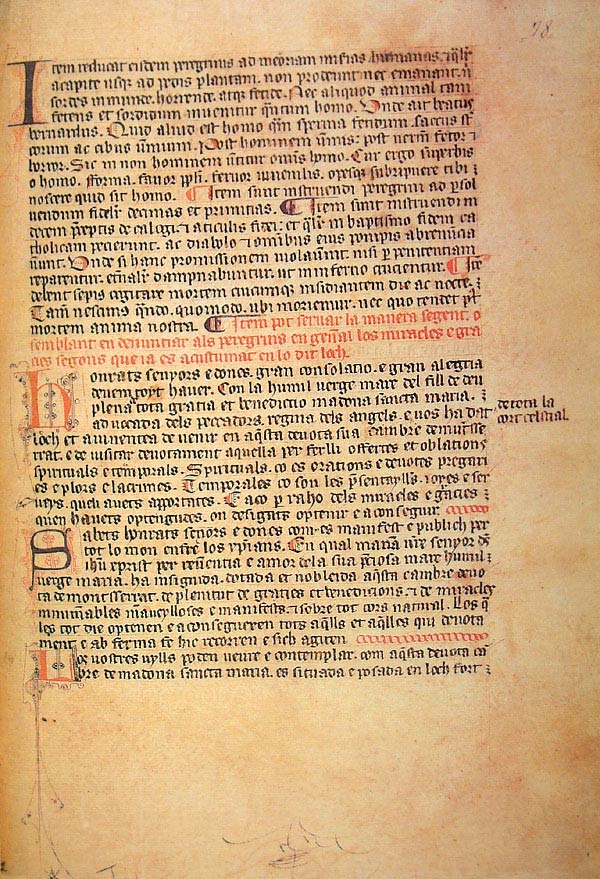 78
Item reducat eisdem peregrinis ad memoriam miserias humanas.
a capite usque ad pedis plantam. non prodeunt nec emanant
sordes inmunde. horrende. atque fetide. Nec aliquod animal tam
fetens et sordidum invenitur quantum homo. Unde ait beatus
bernardus. Quid aliud est homo sperma fetidum. saccus
corum ac cibus vermium. Post hominem vermis: post vermem fetor
horror. Sic in non hominem vertitur omnis homo. Cur ergo superbis
o homo. forma. favor populi. fervor iuvenilis. opesque subripuere tibi
noscere quid sit homo. Item sunt instruendi peregrini ad persol
vendum fideliter decimas et primitias. Item sunt instruendi in
decem preceptis de calogi. articulis fidei: et in baptismo fidem ca
tholicam pecierunt. ac diabolo omnibus eius pompis abrenuncia
verunt. Unde si hanc promissionem violaverint. nisi per penitentiam
reparentur. eternaliter dampnabuntur. ut in inferno crucientur. Ite
debent sepis cogitare mortem cuicumque insidiantem die ac nocte.
Tam nescimus quando. quomodo. ubi moriemur. nec quo tendet post
mortem anima nostra. Item pot servar la manera seguent. o
semblant en denunciar als peregrins en general los miracles e gra
cies segons que ia es acustumat en lo dit loch.
honrats senyors e dones. gran consolatio. e gran alegria
devem tots haver. Con la humil verge mare del fill de deu
plena tota gratia et benedictio madona sancta maria.
advocada dels peccadors. regina dels angels. e vos ha dat de tota la
loch et avinentea de venir en aquesta devota sua cambre de munt ser cort celestial.
rat. e de visitar devotament aquella per ferli offertes et oblations
spirituals e temporals. Spirituals. co es orations e devotes pregari
es e plors e lacrimes. Temporales co son les presentaylls. ioyes e ser
veys. quen avets apportates. E aco per raho dels miracles e gracies
quen havets optengudes. on desigats optenir e a conseguir.
Sabets honrats senors e dones com es manifest e publich per
tot lo mon entre los xpistians. En qual manera nostre senyor deus
ihesu christ per reverentia e amor de la sua preciosa mare humil
verge maria. ha insignida. dotada et nobleida aquesta cambre devo
ta de montserrat. de plenitut de gracies et benedictions. de miracles
innumerables maravelloses e manifests. sobre tot cors natural. Los
les tot die optenen e a consegueren tots aquells et aquelles qui devota
ment. e ab ferma fe hic recorren e sich agiren
Vos vostres uylls poden veure e contemplar. com aquesta devota cam
bre de madona sancta maria. es situada e posada en loch fort